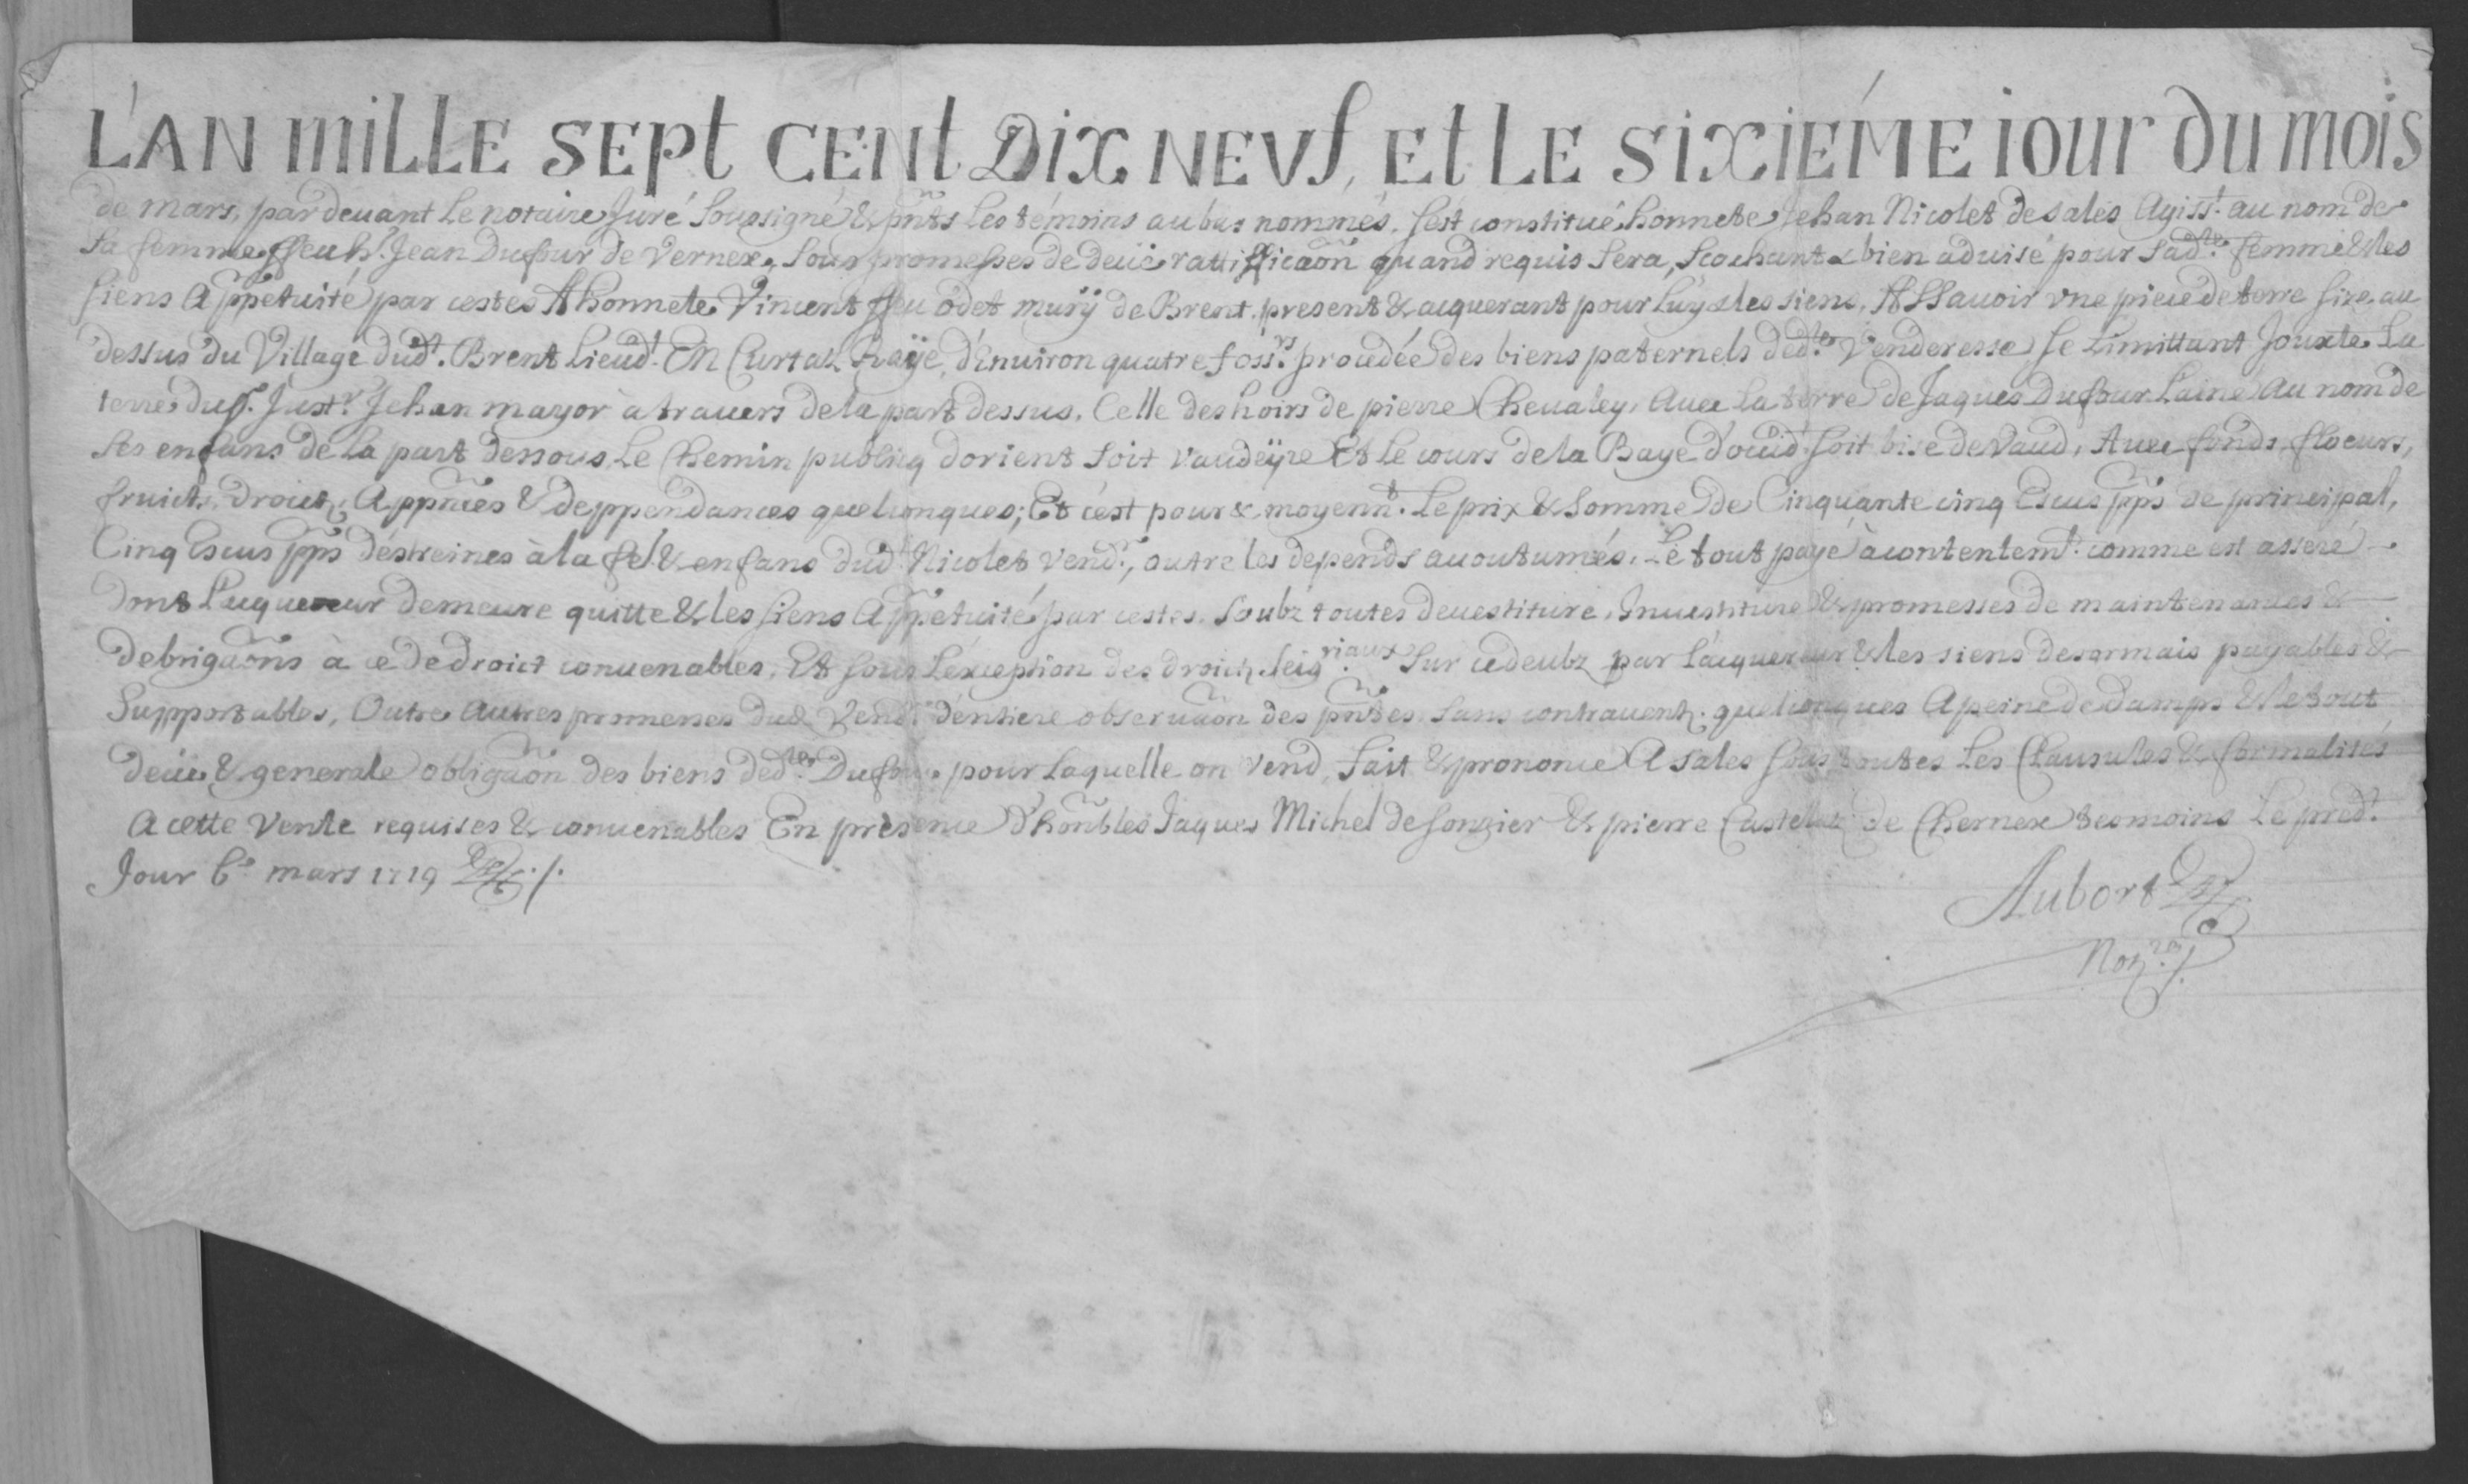 L'AN MILLE SEPT CENT DIX NEVF, ET LE SIXIEME IOUR DU MOIS
de mars, pardeuant Le notaire Juré soussigné & pnts Les témoins au bas nommés, s'est constitué honnete Jehan Nicolet de Sales Agisst. au nom de
sa femme ffeu h. Jean Dufour de Vernex, Sous promesses de deüe rattifficaon quand requis sera, Scachant & bien aduisé pour sadte. femme & les
siens Appetuité par cestes A honnete Vincent ffeu odet mury de Brent, present & acquerant pour Luy & les siens, ASsauoir vne piece de terre size au
dessus du Village dudt. Brent Lieudt. En Curtaz Raÿe, d'enuiron quatre fossrs. procedée des biens paternels dedte. Venderesse se Limittant Jouxte La
terre du sr. Justr. Jehan mayor à trauers de la part dessus, Celle des hoirs de pierre Cheualey, Auec La terre de Jaques Dufour L'ainé Au nom de
ses enfans de La part dessous, Le Chemin publicq d'orient soit vaudeyre Et Le cours de la Baye d'occidt. soit bise de Vaud, Auec fonds, floeurs,
fruicts, droicts, Appnces & deppendances quelconques; Et c'est pour & moyennt. Le prix & somme de Cinquante cinq Escus pps de principal,
Cinq Escus pps d'estreines à la fe. & enfans dudt Nicolet Vendr., outre les depends accoutumés, Le tout payé à contentemt. comme est asseré
dont L'acquereur demeure quitte & les siens Appetuité par cestes, Soubz toutes deuestiture, Inuestiture & promesses de maintenances &
debrigaons à ce de droict conuenables, Et sous L'exception des droicts seigriaux sur ce deubz par L'acquereur & les siens desormais payables &
Supportables, Outre Autres promesses dudt Vendr. d'entiere obseruaon des pntes sans contrauents. quelconques A peine de damps & le tout
deüe & generale obligaon des biens dedte. Dufour pour Laquelle on vend, fait & prononcé A Sales sous toutes Les Clausules & formalités
A cette Vente requises & conuenables En présence d'honbles Jaques Michel de Sonzier & pierre Castelaz de Chernex tesmoins Le predt.
Jour 6e mars 1719
Aubort
Notre.